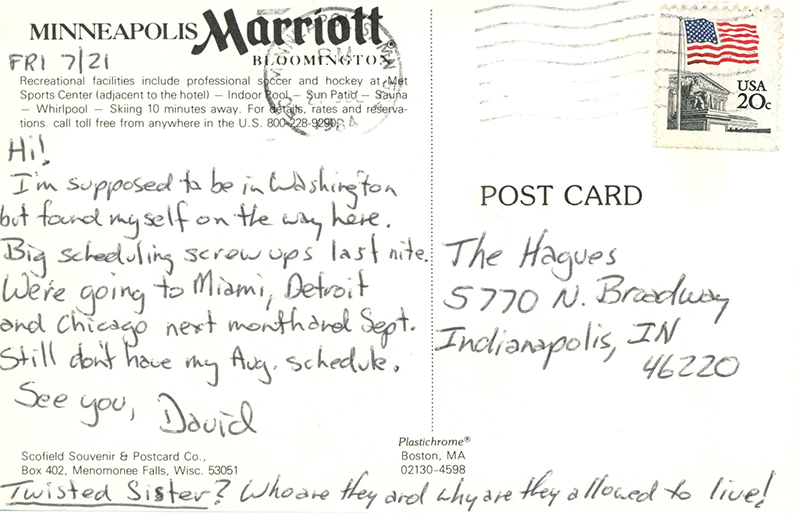 MINNEAPOLIS Marriott
BLOOMINGTON
FRI 7/21
Recreational facilities include professional soccer and hockey at Met
Sports Center (adjacent to the hotel) — Indoor Pool — Sun Patio — Sauna
— Whirlpool — Skiing 10 minutes away. For details, rates and reserva-
tions call toll free from anywhere in the U.S. 800-228-9290.
Hi!
I'm supposed to be in Washington
but found myself on the way here.
Big scheduling screw ups last nite.
We're going to Miami, Detroit
and Chicago next month and Sept.
Still don't have my Aug. schedule.
See you,
David
Scofield Souvenir & Postcard Co.,
Box 402, Menomonee Falls, Wisc. 53051
Twisted Sister? Who are they and why are they allowed to live!
PM
1984
USA
20c
POST CARD
The Hagues
5770 N. Broadway
Indianapolis, IN
46220
Plastichrome®
Boston, MA
02130-4598